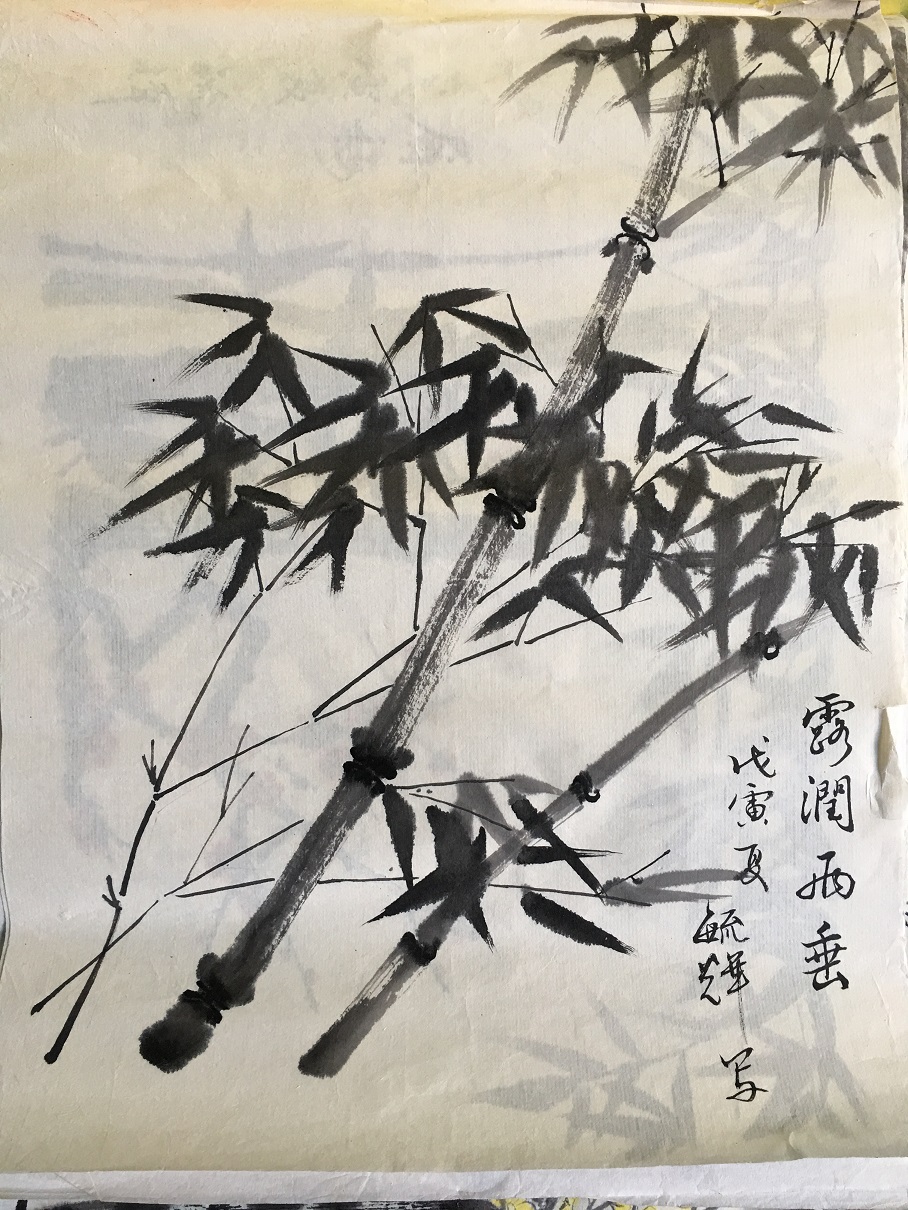 露潤雨垂
戊寅夏
毓輝写